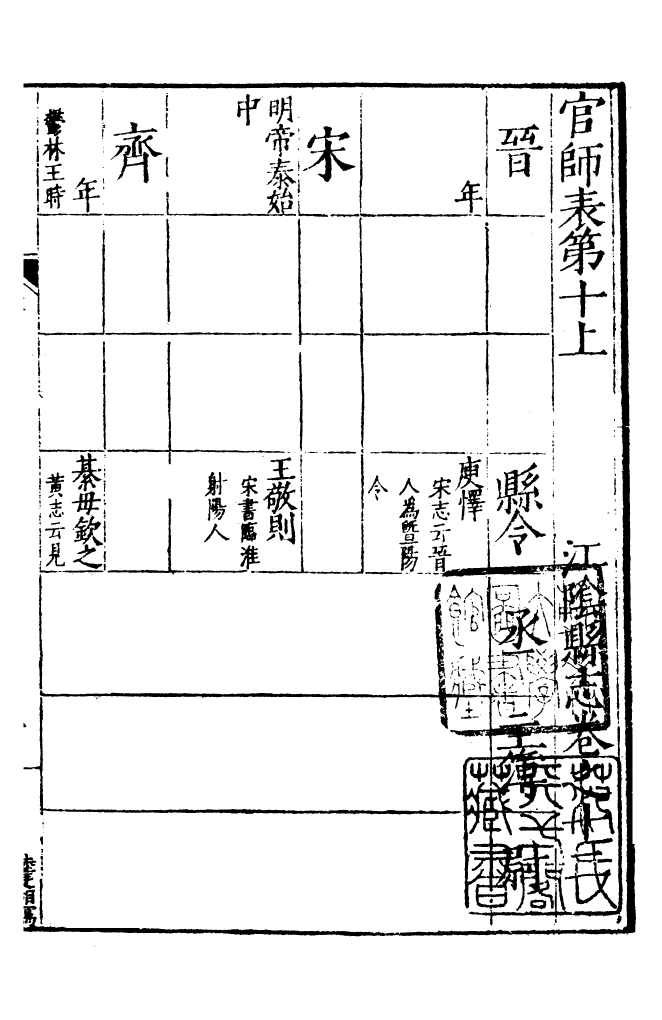 官師表第十上
江陰縣志卷
晉
縣令
丞
主簿
尉
年
庾懌
宋志云晉
人為暨陽
令
宋
明帝泰始
中
王敬則
宋書臨淮
射陽人
齊
年
鬱林王時
綦毋欽之
黃志云見
藏書